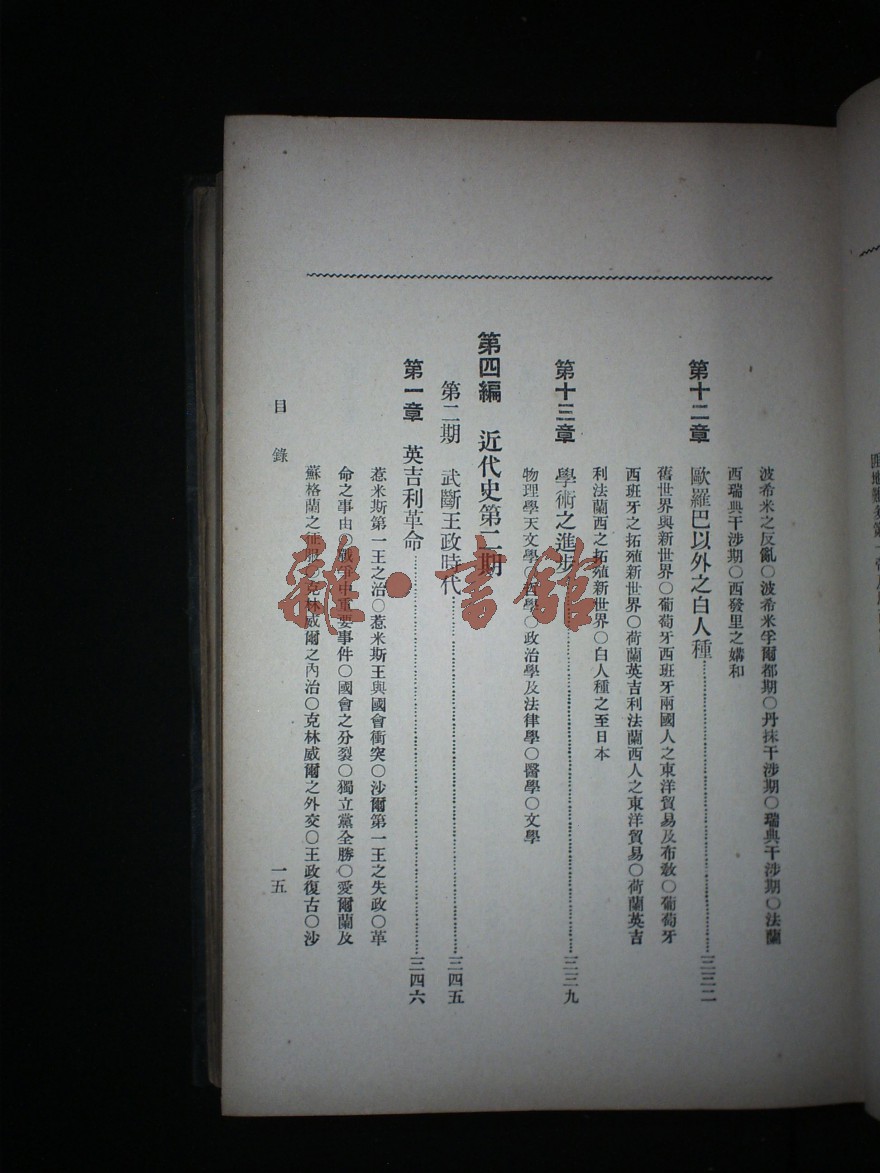 波希米之反亂〇波希米孚爾都期〇丹抹干涉期〇瑞典干涉期〇法蘭
西瑞典干涉期〇西發里之媾和
第十二章 歐羅巴以外之白人種……三三二
舊世界與新世界〇葡萄牙西班牙兩國人之東洋貿易及布教〇葡萄牙
西班牙之拓殖新世界〇荷蘭英吉利法蘭西人之東洋貿易〇荷蘭英吉
利法蘭西之拓殖新世界〇白人種之至日本
第十三章 學術之進步……三三九
物理學天文學〇哲學〇政治學及法律學〇醫學〇文學
第四編 近代史第二期
第二期 武斷王政時代……三四五
第一章 英吉利革命……三四六
惹米斯第一王之治〇惹米斯王與國會衝突〇沙爾第一王之失政〇革
命之事由〇戰爭中重要事件〇國會之分裂〇獨立黨全勝〇愛爾蘭及
蘇格蘭之征服〇克林威爾之內治〇克林威爾之外交〇王政復古〇沙
目錄
一五
雜·書館